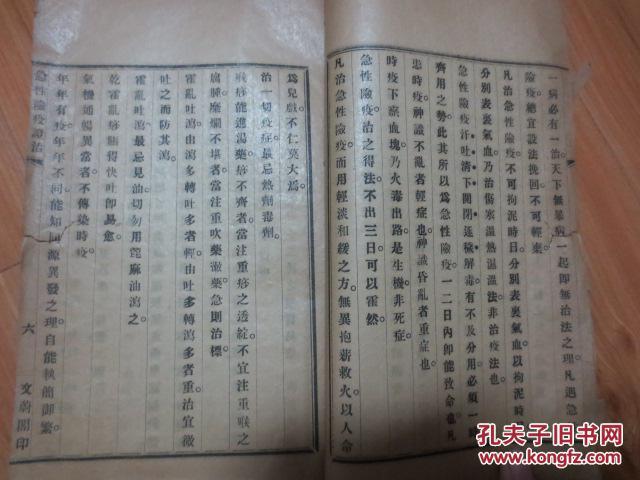 一病必有一治天下無暴病一起即無治法之理凡遇急
險疫總宜設法挽回不可輕棄
凡治急性險疫不可拘泥時日分別表裏氣血以拘泥時
分別表裏氣血乃治傷寒溫熱濕溫法非治疫法也
急性險疫汗吐清下開閉逐穢解毒有不及分用必須一時
齊用之勢此其所以爲急性險疫一二日內即能致命也凡
患時疫神識不亂者輕症也神識昏亂者重症也
時疫下瘀血塊乃火毒出路是生機非死症
急性險疫治之得法不出三日可以霍然
凡治急性險疫而用輕淡和緩之方無異抱薪救火以人命
爲兒戲不仁莫大焉
治一切疫症最忌熱劑毒劑
喉疹能進湯藥疹不齊者當注重疹之透綻不宜注重喉之
腐腫糜爛不堪者當注重吹藥漱藥急則治標
霍亂吐瀉由瀉多轉吐多者輕由吐多轉瀉多者重治宜微
吐之而防其瀉
霍亂吐瀉最忌見油切勿用蓖麻油瀉之
乾霍亂痧脹得快吐即易愈
氣機通暢異當者不傳染時疫
年年有疫年年不同能知同源異發之理自能執簡御繁
急性險疫證治
六
文蔚閣印
孔夫子旧书网
www.kongfz.com